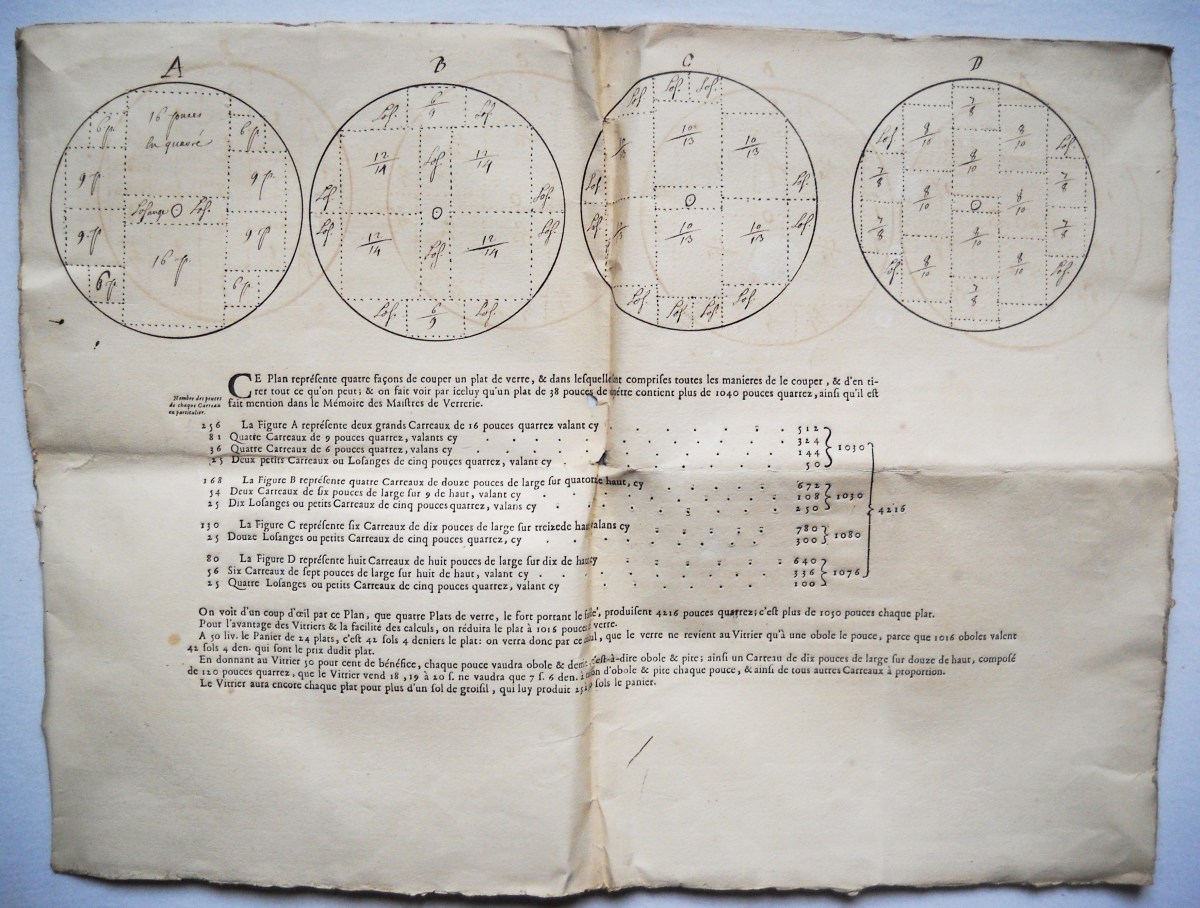 A
B
C
D
16 pouces
en quarré
6 p.
6 p.
9 p.
9 p.
Losange
Los.
9 p.
9 p.
16 p.
6 p.
6 p.
Los.
6/9
Los.
12/14
Los.
12/14
Los.
Los.
Los.
Los.
12/14
Los.
12/14
Los.
6/9
Los.
Los.
Los.
Los.
10/13
10/13
Los.
Los.
Los.
Los.
10/13
10/13
Los.
Los.
Los.
Los.
7/8
Los.
8/10
8/10
Los.
7/8
8/10
7/8
8/10
8/10
7/8
8/10
7/8
Los.
8/10
8/10
Los.
7/8
CE Plan représente quatre façons de couper un plat de verre, & dans lesquelles sont comprises toutes les manieres de le couper, & d'en ti-
rer tout ce qu'on peut; & on fait voir par iceluy qu'un plat de 38 pouces de diamétre contient plus de 1040 pouces quarrez, ainsi qu'il est
fait mention dans le Mémoire des Maistres de Verrerie.
Nombre des pouces
de chaque Carreau
en particulier.
256 La Figure A représente deux grands Carreaux de 16 pouces quarrez valant cy . . . . . . 512
81 Quatre Carreaux de 9 pouces quarrez, valants cy . . . . . . 324
36 Quatre Carreaux de 6 pouces quarrez, valans cy . . . . . . 144 } 1030
25 Deux petits Carreaux ou Losanges de cinq pouces quarrez, valant cy . . . . . . 50
168 La Figure B représente quatre Carreaux de douze pouces de large sur quatorze haut, cy . . . . . . 672
54 Deux Carreaux de six pouces de large sur 9 de haut, valant cy . . . . . . 108 } 1030
25 Dix Losanges ou petits Carreaux de cinq pouces quarrez, valans cy . . . . . . 250 } 4216
130 La Figure C représente six Carreaux de dix pouces de large sur treize de haut valans cy . . . . . . 780
25 Douze Losanges ou petits Carreaux de cinq pouces quarrez, cy . . . . . . 300 } 1080
80 La Figure D représente huit Carreaux de huit pouces de large sur dix de haut cy . . . . . . 640
56 Six Carreaux de sept pouces de large sur huit de haut, valant cy . . . . . . 336 } 1076
25 Quatre Losanges ou petits Carreaux de cinq pouces quarrez, valant cy . . . . . . 100
On voit d'un coup d'œil par ce Plan, que quatre Plats de verre, le fort portant le foible, produisent 4216 pouces quarrez; c'est plus de 1050 pouces chaque plat.
Pour l'avantage des Vitriers & la facilité des calculs, on réduira le plat à 1016 pouces de verre.
A 50 liv. le Panier de 24 plats, c'est 42 sols 4 deniers le plat: on verra donc par ce calcul, que le verre ne revient au Vitrier qu'à une obole le pouce, parce que 1016 oboles valent
42 sols 4 den. qui sont le prix dudit plat.
En donnant au Vitrier 50 pour cent de bénéfice, chaque pouce vaudra obole & demie, c'est-à-dire obole & pite; ainsi un Carreau de dix pouces de large sur douze de haut, composé
de 120 pouces quarrez, que le Vitrier vend 18, 19 à 20 s. ne vaudra que 7 s. 6 den. à raison d'obole & pite chaque pouce, & ainsi de tous autres Carreaux à proportion.
Le Vitrier aura encore chaque plat pour plus d'un sol de groisil, qui luy produit sols le panier.